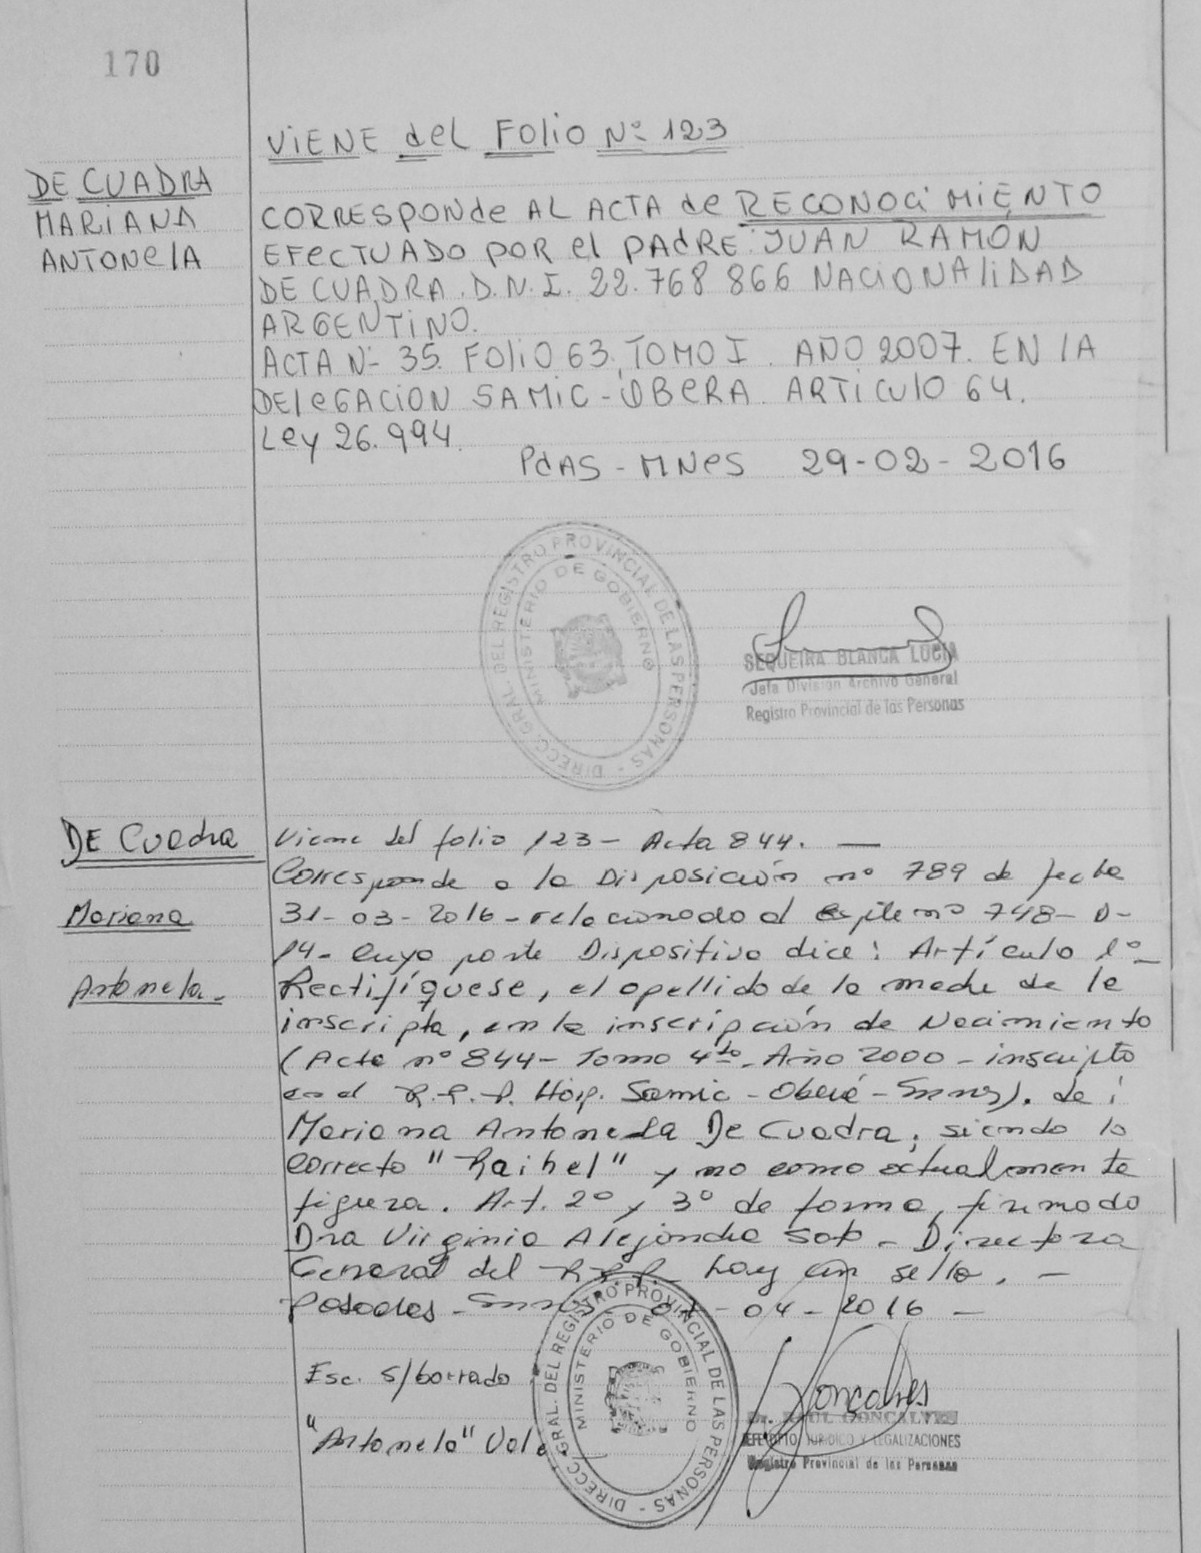 170
VIENE del FOLIO Nº 123
DE CUADRA
MARIANA
ANTONELA
CORRESPONDE AL ACTA de RECONOCIMIENTO
EFECTUADO POR el PADRE: JUAN RAMÓN
DE CUADRA. D.N.I. 22.768 866 NACIONALIDAD
ARGENTINO.
ACTA Nº 35. FOLIO 63, TOMO I. AÑO 2007. EN LA
DELEGACION SAMIC-OBERA. ARTICULO 64.
Ley 26.994.
PdAS-MNES 29-02-2016
DIRECC. GRAL. DEL REGISTRO PROVINCIAL DE LAS PERSONAS -
MINISTERIO DE GOBIERNO
SEQUEIRA BLANCA LUCIA
Jefa División Archivo General
Registro Provincial de las Personas
DE Cuadra
Mariana
Antonela.-
Viene del folio 123- Acta 844. —
Corresponde a la Disposición nº 789 de fecha
31-03-2016-relacionado al expte nº 748-D-
14- cuyo parte Dispositiva dice: Artículo 1º-
Rectifíquese, el apellido de la madre de la
inscripta, en la inscripción de Nacimiento
(Acta nº 844- Tomo 4to- Año 2000- inscripto
en el R.P.P. Hosp. Samic-Oberá-Smns). de:
Mariana Antonela De Cuadra; siendo lo
correcto "Raibel" y no como actualmente
figura. Art. 2º y 3º de forma, firmado
Dra Virginia Alejandra Soto - Directora
General del R.P.P. hay un sello. -
Posadas - Smns - 04 - 2016 -
Esc. s/borrado
"Antonela" Vale
DIRECC. GRAL. DEL REGISTRO PROVINCIAL DE LAS PERSONAS -
MINISTERIO DE GOBIERNO
Goncalves
Dr. RAUL GONCALVES
JEFE DPTO. JURIDICO Y LEGALIZACIONES
Registro Provincial de las Personas